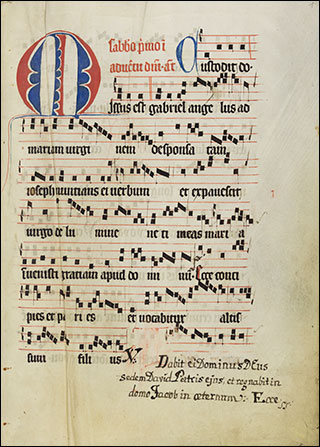 Sabbo pimo i
aduētū dnī. añ Custodit do
Missus est gabriel ange lus ad
mariam uirgi nem desponsa tam
ioseph nuntians ei uerbum et expauescit
uirgo de lu mine ne ti meas mari a
inuenisti gratiam apud do mi num Ecce conci
pies et pa ri es et uocabitur altis
simi fili us V. Dabit ei Dominus DEus
sedem David Patris ejus, et regnabit in
domo Jacob in æternum: Ecce